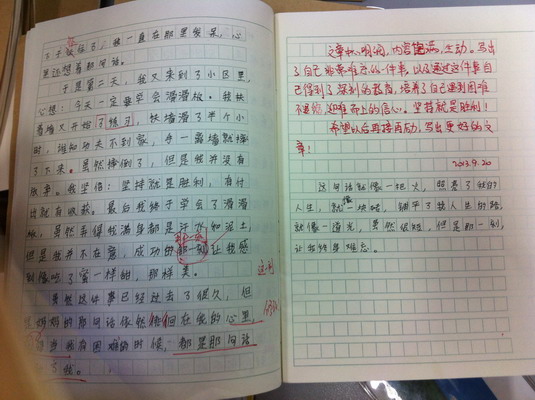 我一直在那里发呆，心
里还想着那句话。
于是第二天，我又来到了小区里，
心想：今天一定要学会滑滑板。我扶
着墙又开始了练习，扶墙滑了半个小
时，谁知功夫不到家，手一离墙就摔
了下来。虽然摔倒了，但是我并没有
放弃。我坚信：坚持就是胜利，有付
出就有收获。最后我终于学会了滑滑
板，虽然弄得我满身都是汗水和泥土
但是我并不在意，成功的那一刻让我感
到像吃了蜜一样甜，那样美。
这刹
虽然这件事已经过去了很久，但
妈妈的那句话依然徘徊在我的心里，
当我有困难的时候，都是那句话
了我。
文章中心明确，内容饱满，生动。写出
了自己非常难忘的一件事，以及通过这件事自
己得到了深刻的教育，培养了自己遇到困难
不退缩，迎难而上的信心。坚持就是胜利！
希望以后再接再励，写出更好的文
章！
2013.9.20
这句话就像一把火，照亮了我的
人生，就像一块砖，铺平了我人生的路，
就像一道光，虽然很短，但是那一刻，
让我终身难忘。